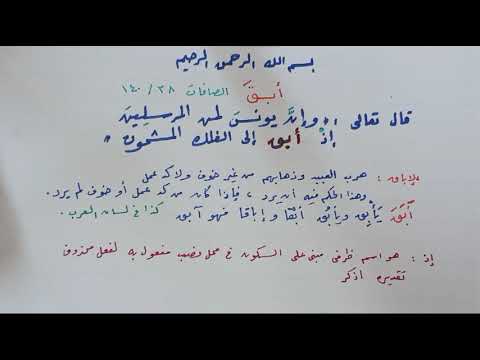 بسم الله الرحمن الرحيم
أبقَ الصافات ٣٨/١٤٠
قال تعالى : "وإنَّ يونسَ لمن المرسلينَ
إذْ أبق إلى الفلك المشحون"
الإباق : هرب العبيد وذهابهم من غير خوف ولا كد عمل
وهذا الحكم فيه أن يرد ، فإذا كان من كد عمل أو خوف لم يرد .
أَبَقَ يَأْبِق ويأبُق أبْقًا وإباقًا فهو آبق كذا في لسان العرب .
إذ : هو اسم ظرفي مبني على السكون في محل نصب مفعول به لفعل محذوف
تقديره اذكر